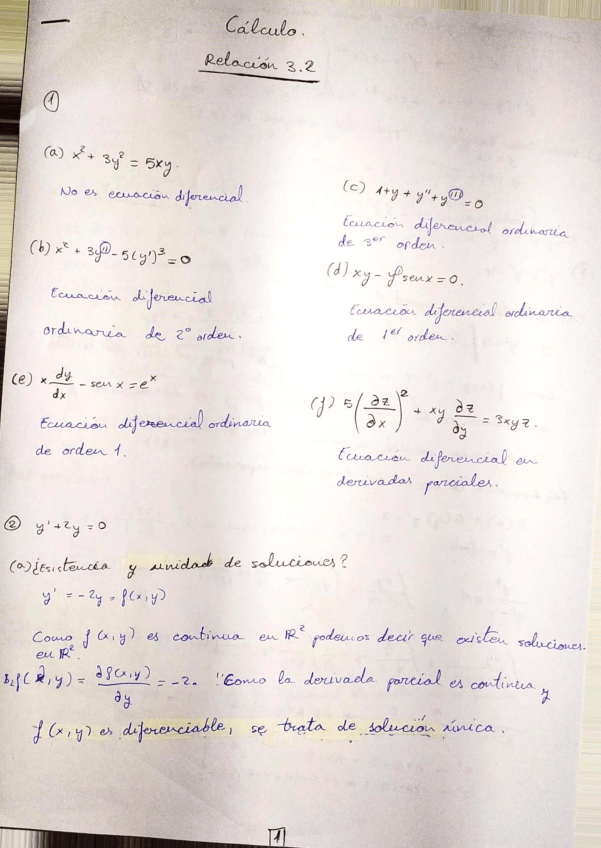 Cálculo.
Relación 3.2
①
(a) x² + 3y² = 5xy.
No es ecuación diferencial.
(b) x² + 3y'' - 5(y')³ = 0
Ecuación diferencial
ordinaria de 2º orden.
(c) 1+y+y''+y''' = 0
Ecuación diferencial ordinaria
de 3er orden.
(d) xy - y' senx = 0.
Ecuación diferencial ordinaria
de 1er orden.
(e) x dy/dx - sen x = e^x
Ecuación diferencial ordinaria
de orden 1.
(f) 5(∂z/∂x)² + xy ∂z/∂y = 3xyz.
Ecuación diferencial en
derivadas parciales.
② y' + 2y = 0
(a) ¿Existencia y unidad de soluciones?
y' = -2y = f(x,y)
Como f(x,y) es continua en ℝ² podemos decir que existen soluciones.
en ℝ².
f(x,y) = ∂f(x,y)/∂y = -2. Como la derivada parcial es continua y
f(x,y) es diferenciable, se trata de solución única.
1